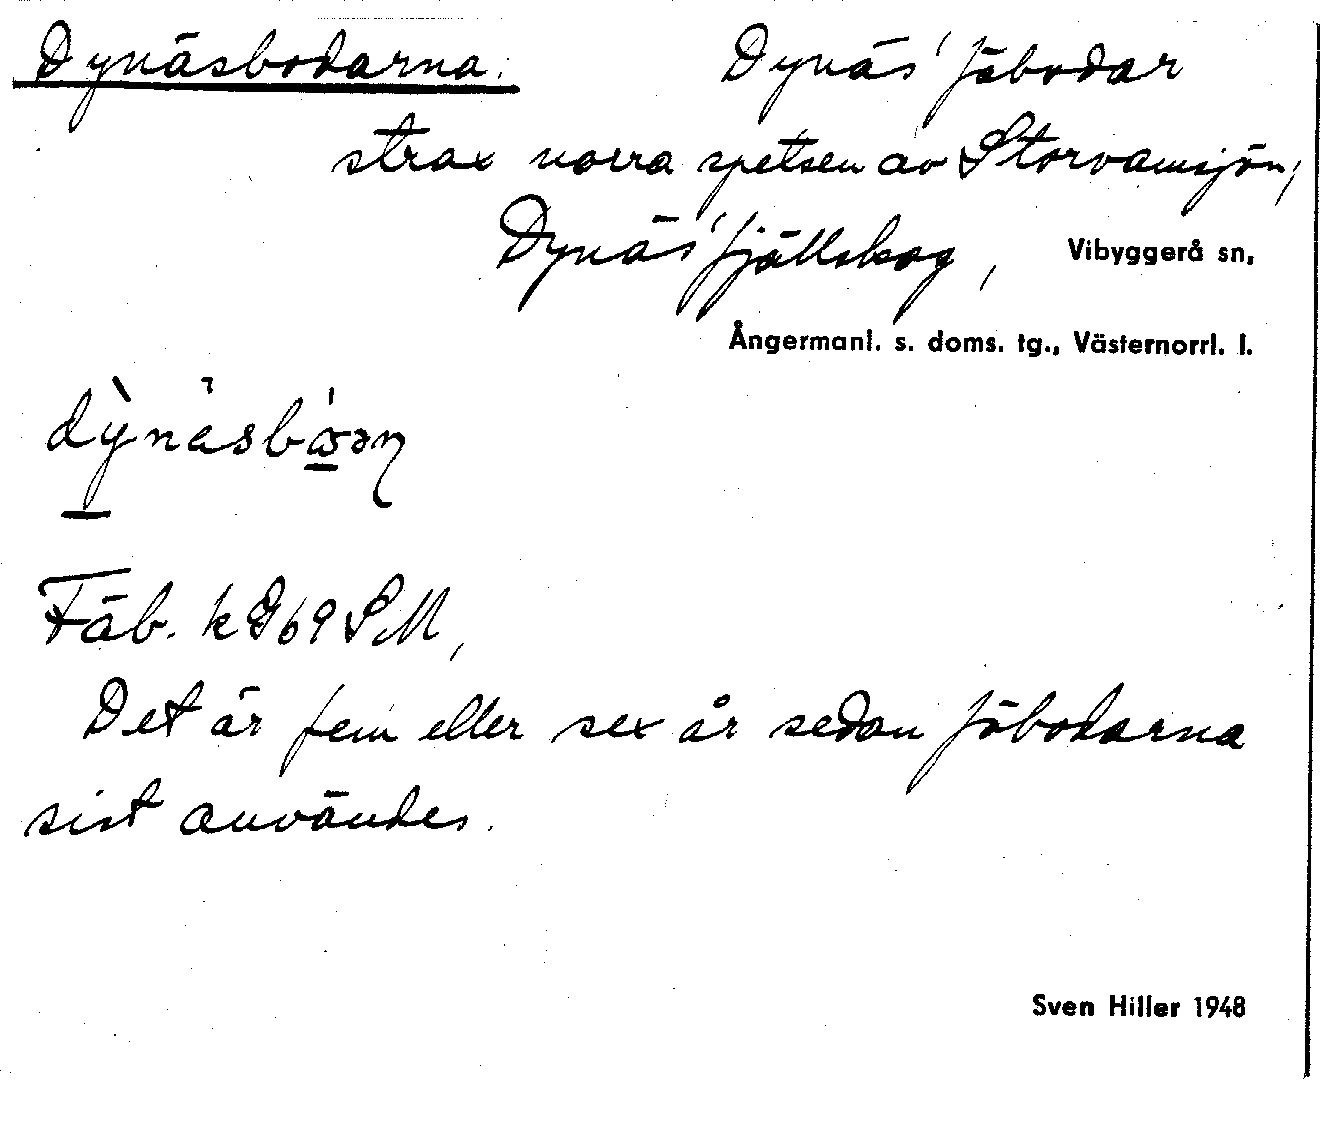 Dynäsbodarna. Dynäs' fäbodar
strax norra spetsen av Storvamsjön,
Dynäs' fjällskog, Vibyggerå sn,
Ångermanl. s. doms. tg., Västernorrl. l.
Fäb. k D69 SM,
Det är fem eller sex år sedan fäbodarna
sist användes.
Sven Hiller 1948